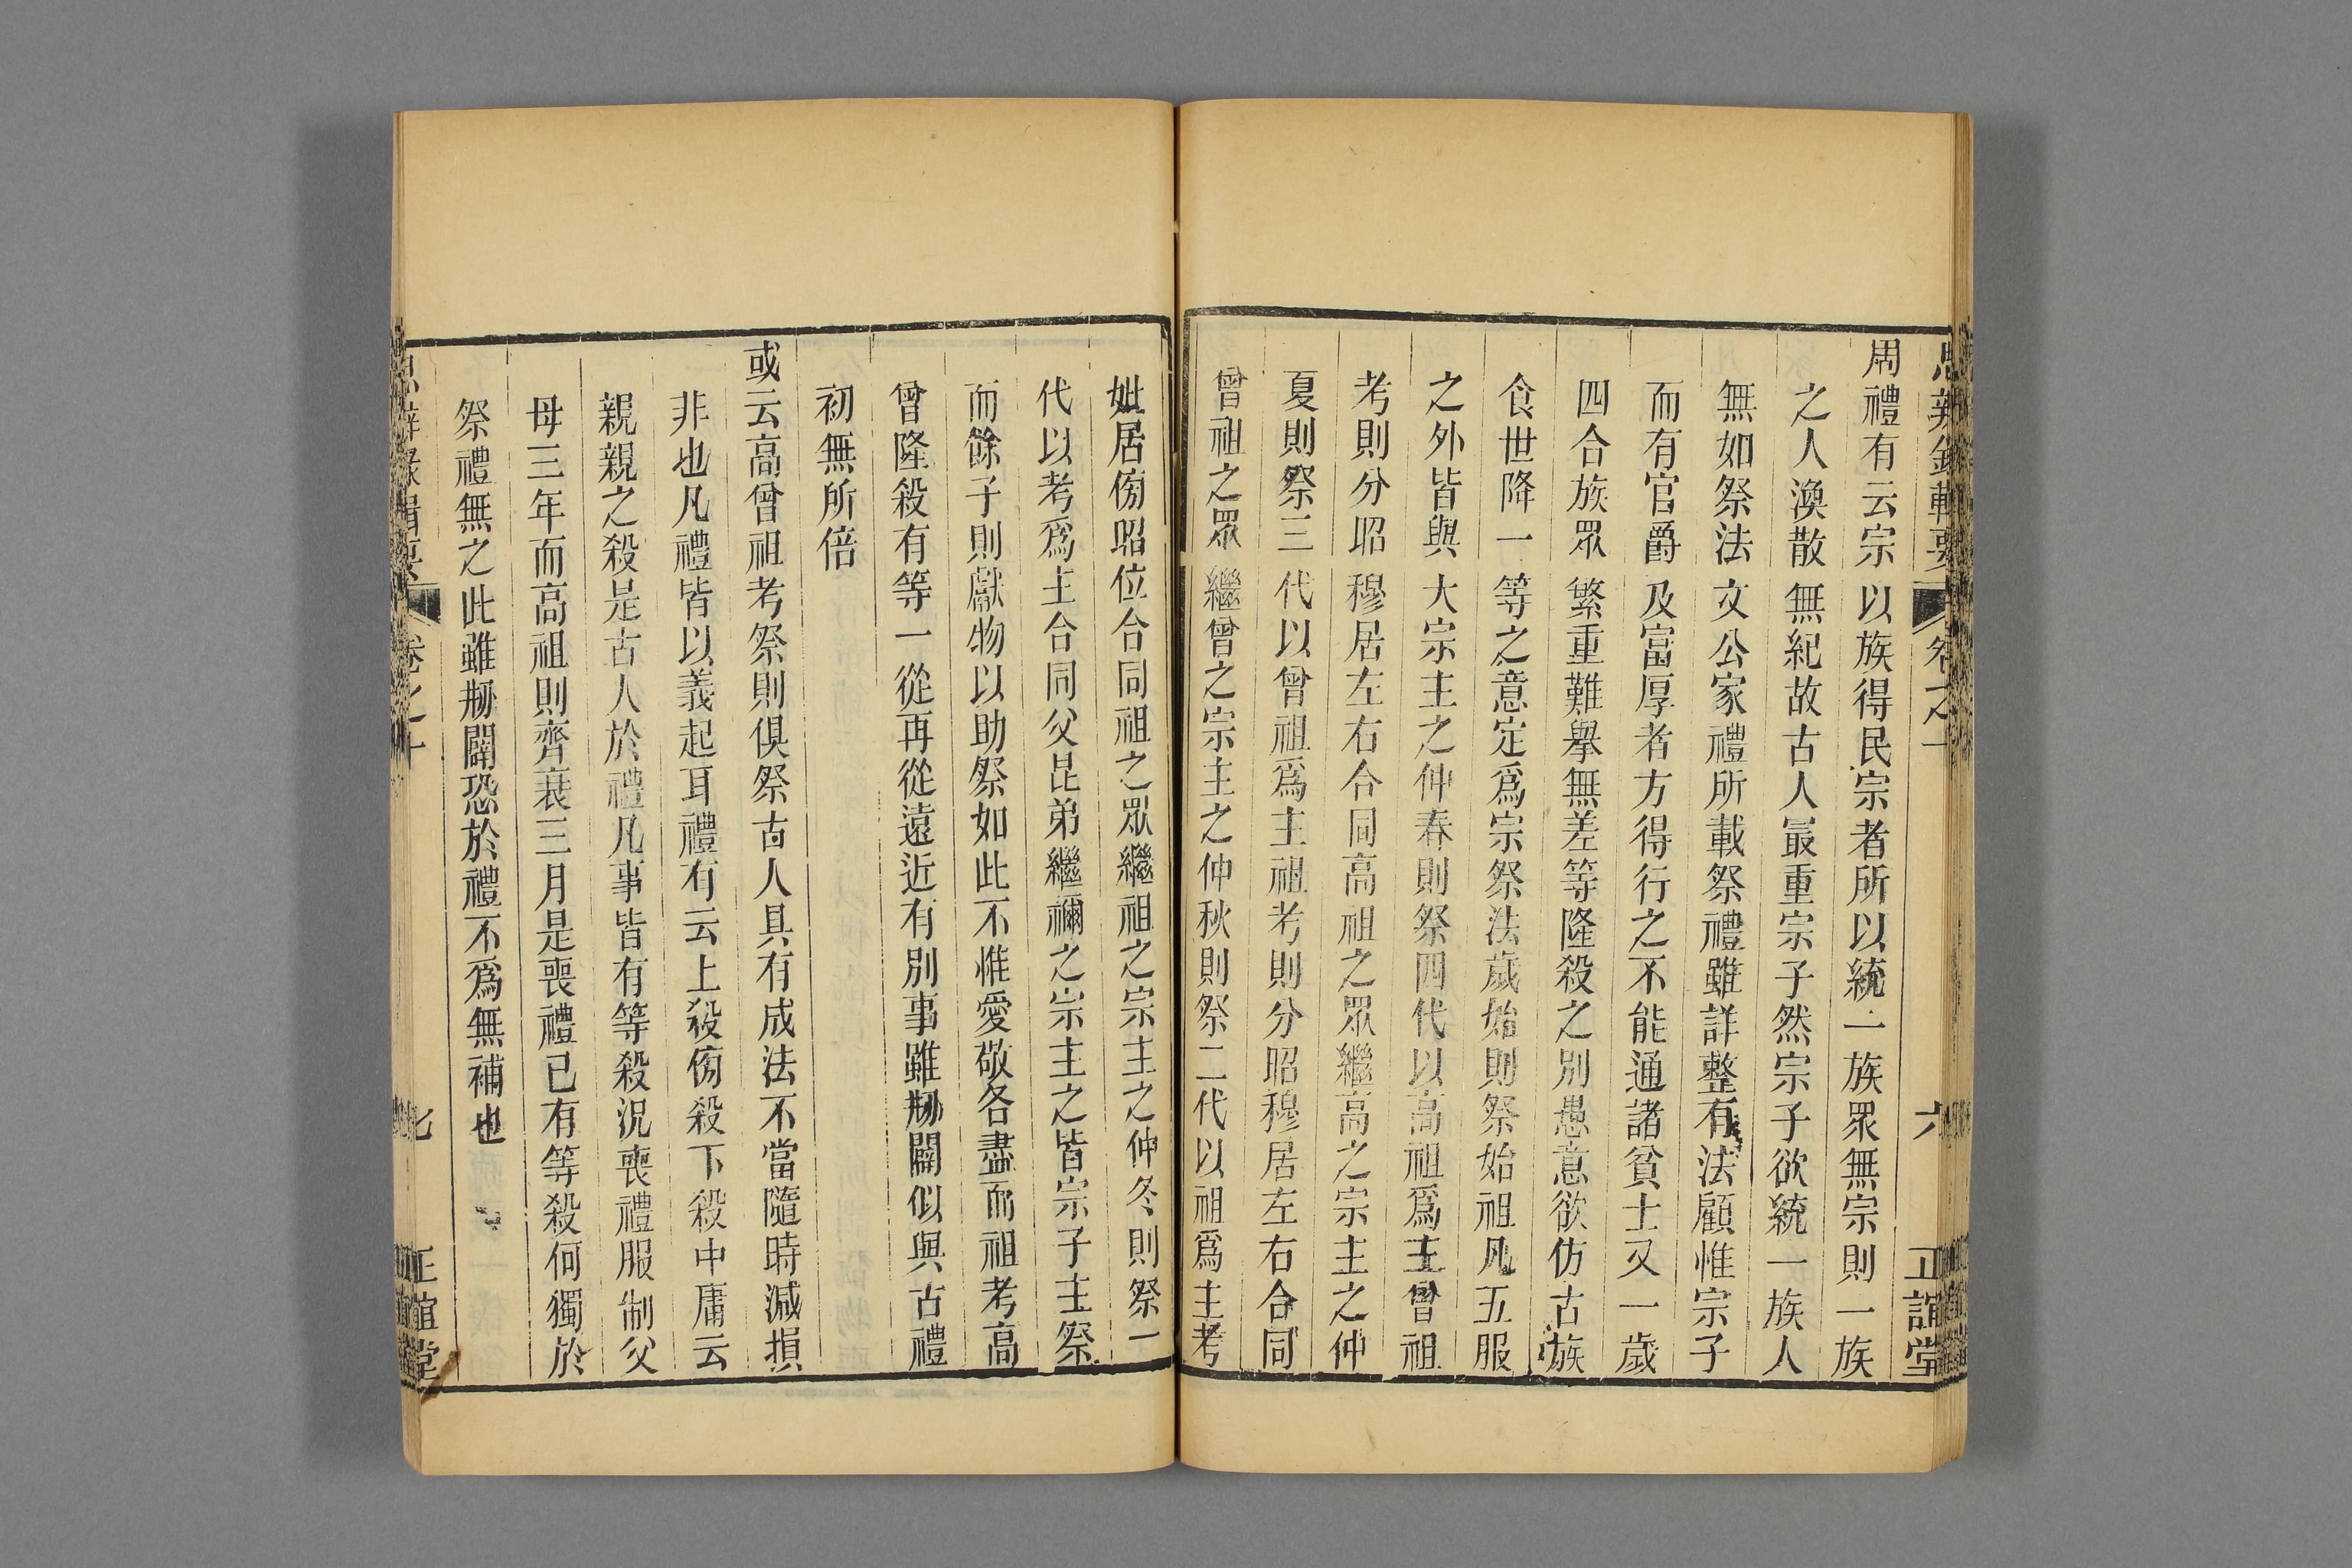 思辨錄輯要 卷之十 六 正誼堂
周禮有云宗以族得民宗者所以統一族眾無宗則一族
之人渙散無紀故古人最重宗子然宗子欲統一族人
無如祭法文公家禮所載祭禮雖詳整有法顧惟宗子
而有官爵及富厚者方得行之不能通諸貧士又一歲
四合族眾繁重難舉無差等隆殺之別愚意欲仿古族
食世降一等之意定爲宗祭法歲始則祭始祖凡五服
之外皆與大宗主之仲春則祭四代以高祖爲主曾祖
考則分昭穆居左右合同高祖之眾繼高之宗主之仲
夏則祭三代以曾祖爲主祖考則分昭穆居左右合同
曾祖之眾繼曾之宗主之仲秋則祭二代以祖爲主考
妣居傍昭位合同祖之眾繼祖之宗主之仲冬則祭一
代以考爲主合同父昆弟繼禰之宗主之皆宗子主祭
而餘子則獻物以助祭如此不惟愛敬各盡而祖考高
曾隆殺有等一從再從遠近有別事雖刱闢似與古禮
初無所倍
或云高曾祖考祭則俱祭古人具有成法不當隨時減損
非也凡禮皆以義起耳禮有云上殺傍殺下殺中庸云
親親之殺是古人於禮凡事皆有等殺況喪禮服制父
母三年而高祖則齊衰三月是喪禮已有等殺何獨於
祭禮無之此雖刱闢恐於禮不爲無補也
思辨錄輯要 卷之十 七 正誼堂